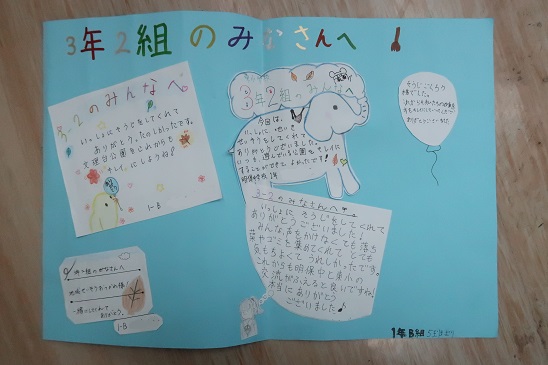 3年2組のみなさんへ
3-2のみんなへ。
いっしょにそうじをしてくれて
ありがとう。たのしかったです。
文理台公園をこれからも
キレイにしようね!
1-B
3年2組のみんなへ
今日は、
いっしょに地いき
せいそうをしてくれて
ありがとうございました。
いつも遊んでいる公園をキレイに
することができてよかったです!
そうじごくろう
様でした。
3-2のみなさんへ
いっしょにそうじをしてくれて
ありがとうございました!
みんな、声をかけなくても落ち
葉やゴミを集めてくれて、とても
気もちよくて、うれしかったです。
これからも明保中と東小の
交流がふえると良いですね!
本当にありがとう
ございました♪
3年2組のみなさんへ
地域せいそうおつかれ様!
一緒にしてくれて
ありがとう。
1-B
1年B組